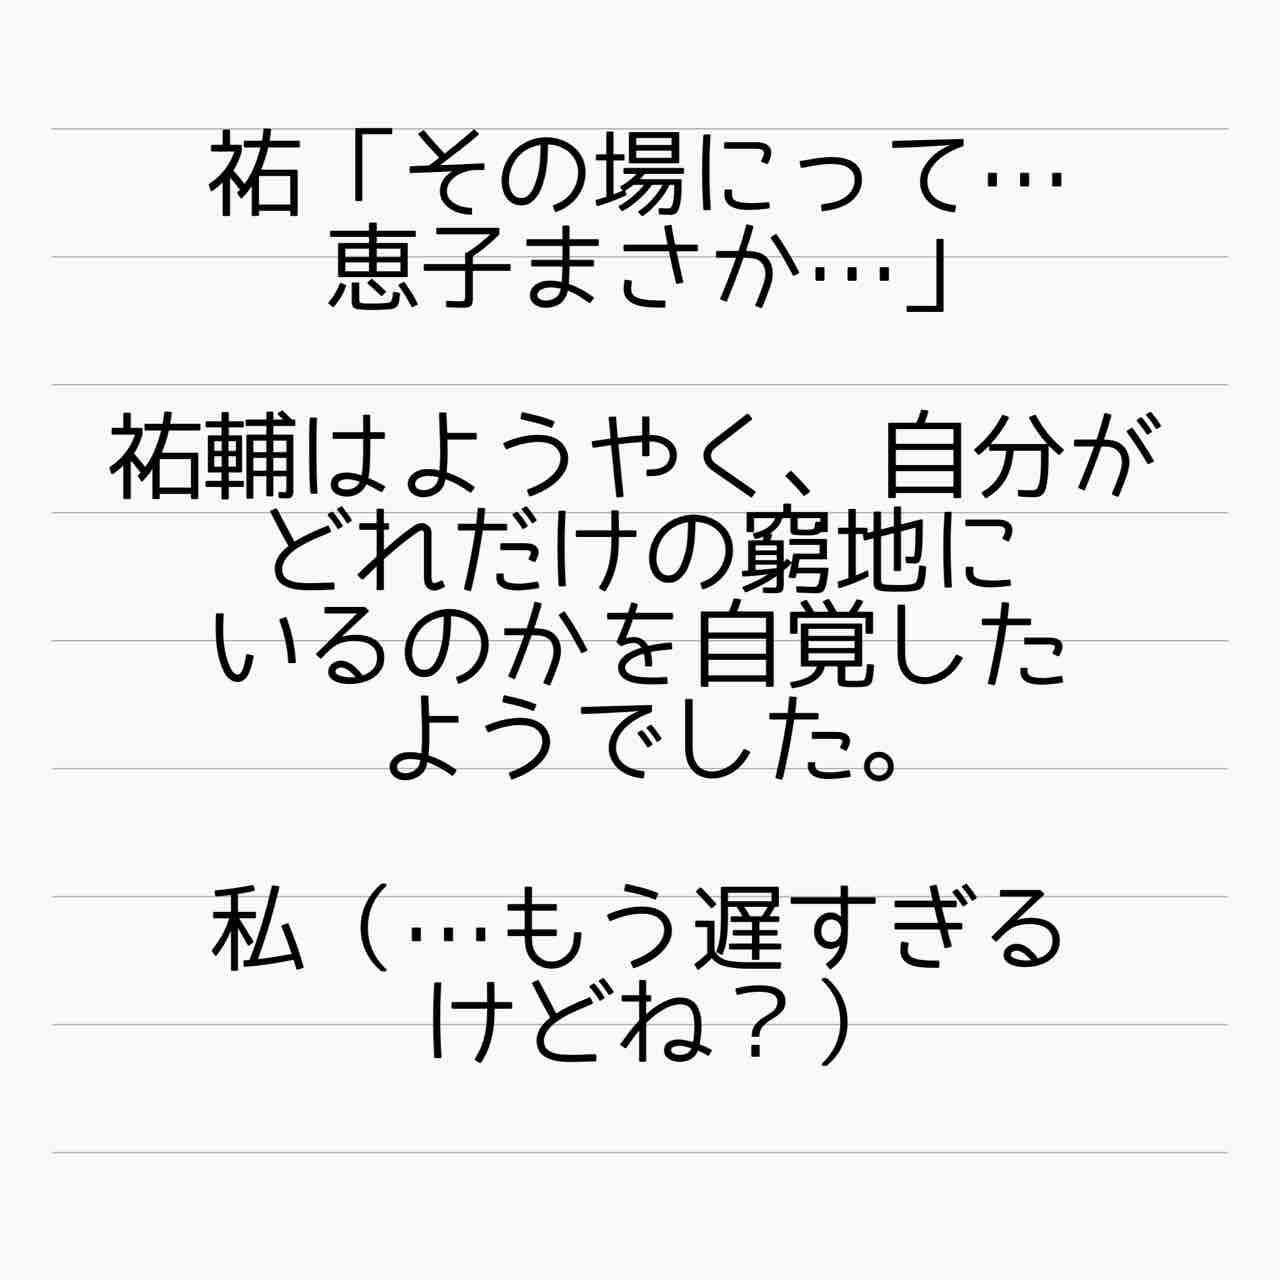 祐「その場にって…
恵子まさか…」
祐輔はようやく、自分が
どれだけの窮地に
いるのかを自覚した
ようでした。
私（…もう遅すぎる
けどね？）